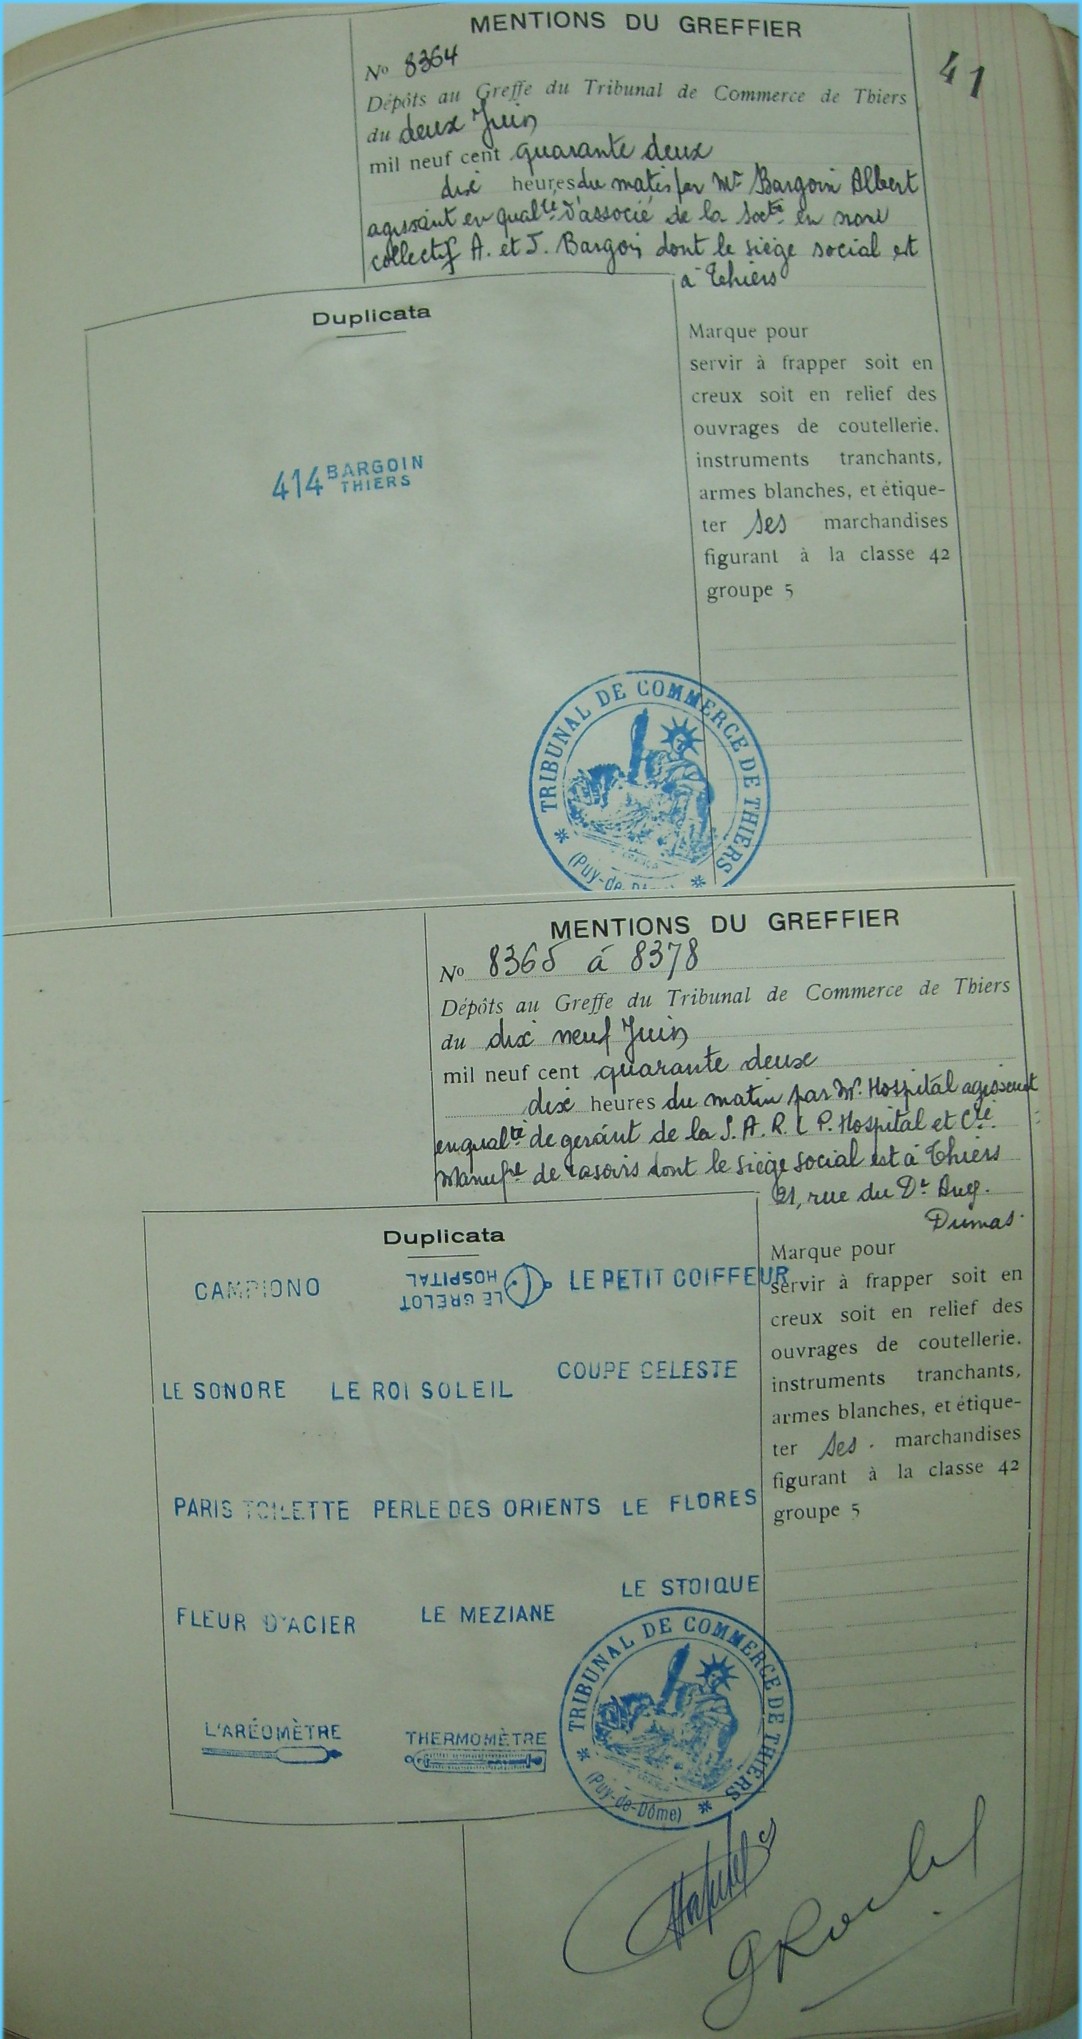 MENTIONS DU GREFFIER
41
No 8364
Dépôts au Greffe du Tribunal de Commerce de Thiers
du deux Juin
mil neuf cent quarante deux
dix heures du matin par Mr Bargoin Albert
agissant en qualité d'associé de la Socté en nom
collectif A. et J. Bargoin dont le siège social est
à Thiers
Duplicata
414 BARGOIN
THIERS
Marque pour
servir à frapper soit en
creux soit en relief des
ouvrages de coutellerie.
instruments tranchants,
armes blanches, et étique-
ter ses marchandises
figurant à la classe 42
groupe 5
TRIBUNAL DE COMMERCE DE THIERS
(Puy-de-Dôme)
MENTIONS DU GREFFIER
No 8365 à 8378
Dépôts au Greffe du Tribunal de Commerce de Thiers
du dix neuf Juin
mil neuf cent quarante deux
dix heures du matin par Mr. Hospital agissant
en qualté de gérant de la S.A.R.L P. Hospital et Cie
Manufre de rasoirs dont le siège social est à Thiers
21, rue du Dr Aug.
Dumas.
Duplicata
CAMPIONO LE GRELOT LE PETIT COIFFEUR
HOSPITAL
LE SONORE LE ROI SOLEIL COUPE CELESTE
PARIS TOILETTE PERLE DES ORIENTS LE FLORES
FLEUR D'ACIER LE MEZIANE LE STOIQUE
L'ARÉOMÈTRE THERMOMÈTRE
Marque pour
servir à frapper soit en
creux soit en relief des
ouvrages de coutellerie.
instruments tranchants,
armes blanches, et étique-
ter ses. marchandises
figurant à la classe 42
groupe 5
TRIBUNAL DE COMMERCE DE THIERS
(Puy-de-Dôme)